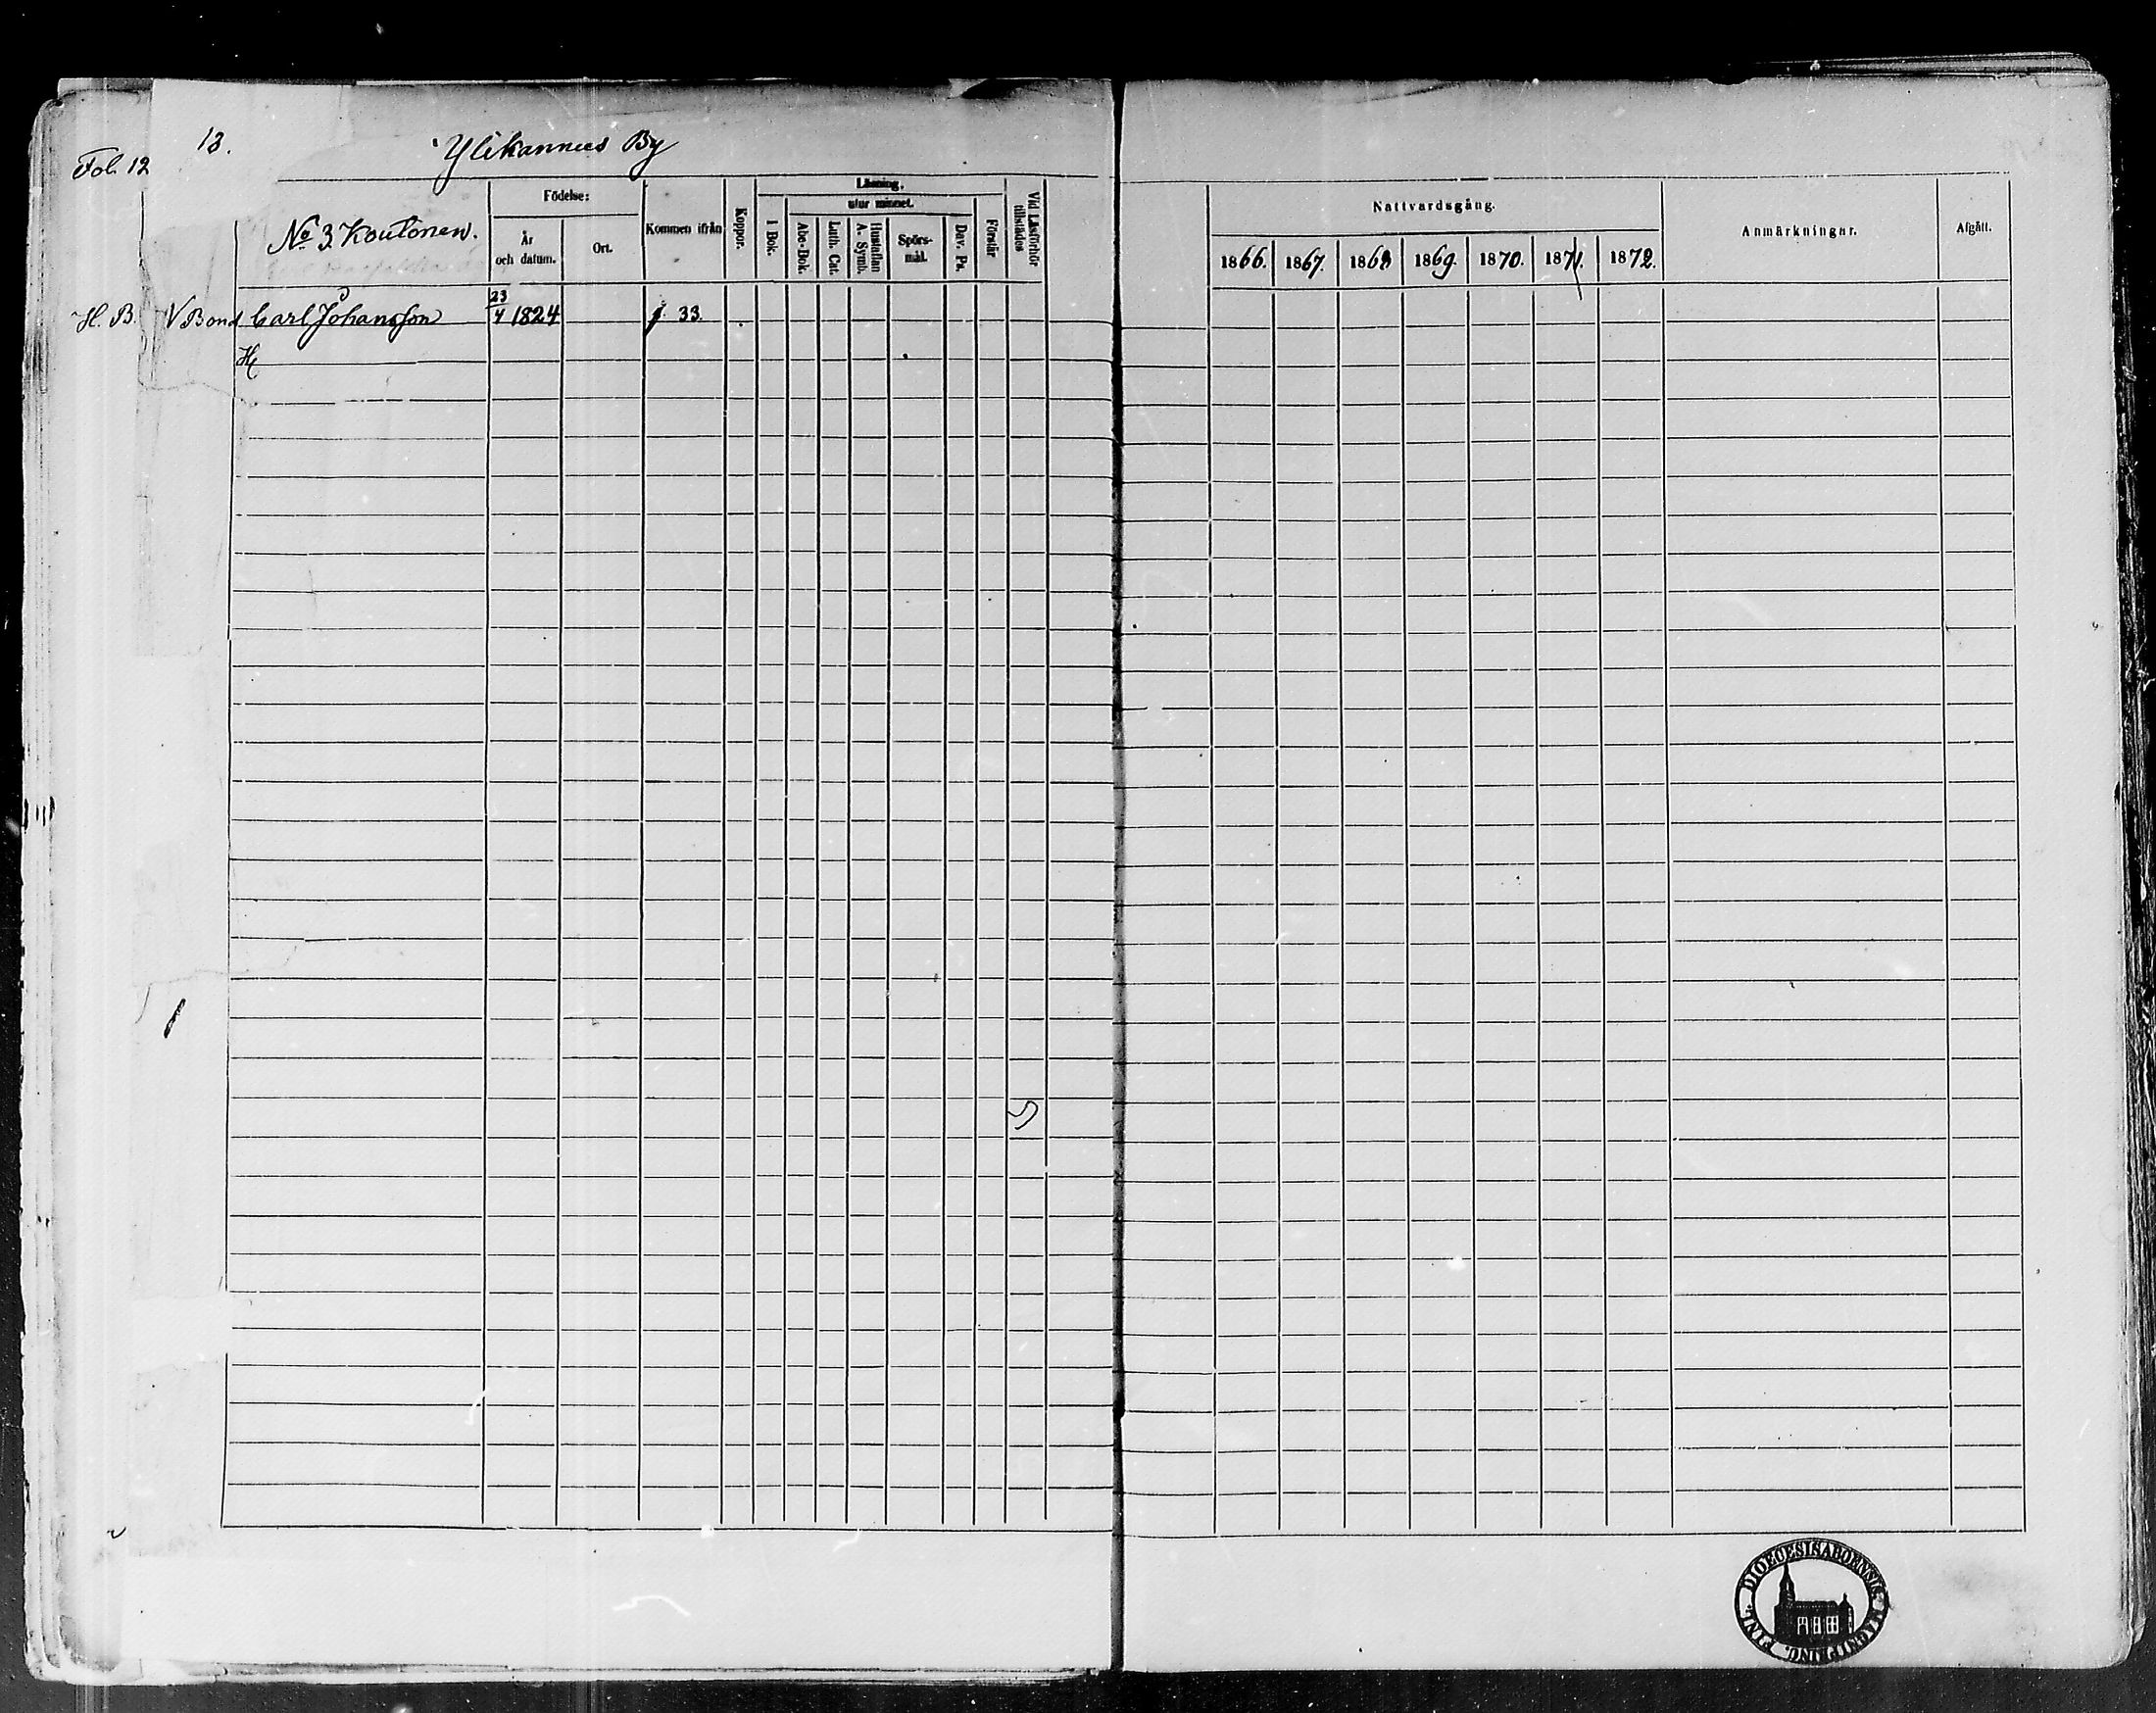 13.
Fol. 12
Ylikannus By
No 3. Koutonen.
Födelse:
År och datum.
Ort.
Kommen ifrån
Koppor.
Läsning.
utur minnet.
I Bok.
Abc-Bok.
Luth. Cat.
Hustaflan A. Symb.
Spörs-mål.
Dav. Ps.
Förstår
Vid Läsförhör tillstädes
Nattvardsgång.
1866. 1867. 1868 1869. 1870. 1871. 1872.
Anmärkningar.
Afgått.
H. B. V Bond Carl Johansson 23/4 1824 33.
H
DIOECESIS ABOENSIS MAGNI PRINC. FINL.